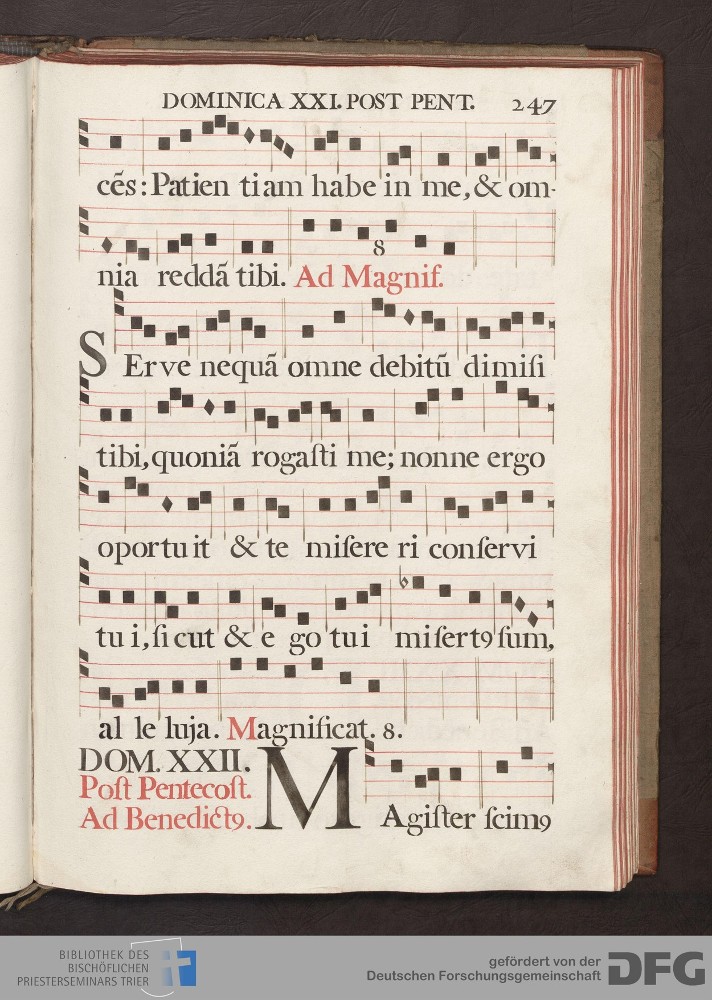 DOMINICA XXI. POST PENT. 247
cẽs: Patien tiam habe in me, & om-
8
nia reddã tibi. Ad Magnif.
SErve nequã omne debitũ dimiſi
tibi, quoniã rogaſti me; nonne ergo
oportu it & te miſere ri conſervi
tu i, ſi cut & e go tui miſertꝯ ſum,
al le luja. Magnificat. 8.
DOM. XXII.
Poſt Pentecoſt.
Ad Benedictꝯ.
MAgiſter ſcimꝯ
BIBLIOTHEK DES
BISCHÖFLICHEN
PRIESTERSEMINARS TRIER
gefördert von der
Deutschen Forschungsgemeinschaft
DFG